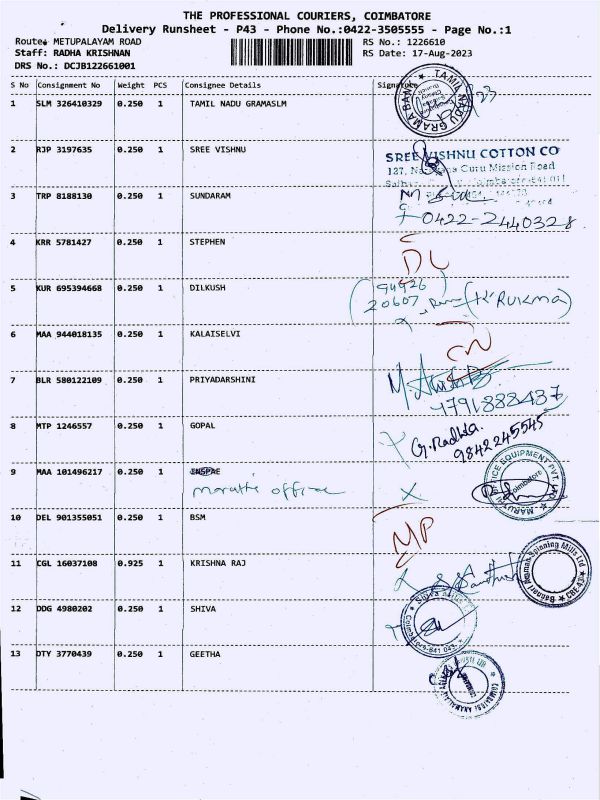 THE PROFESSIONAL COURIERS, COIMBATORE
Delivery Runsheet - P43 - Phone No.:0422-3505555 - Page No.:1
Route: METUPALAYAM ROAD RS No.: 1226610
Staff: RADHA KRISHNAN RS Date: 17-Aug-2023
DRS No.: DCJB122661001
S No Consignment No Weight PCS Consignee Details Signature
1 SLM 326410329 0.250 1 TAMIL NADU GRAMASLM
TAMIL NADU GRAMA BANK
23
2 RJP 3197635 0.250 1 SREE VISHNU
SREE VISHNU COTTON CO
127, Guru Mission Road
3 TRP 8188130 0.250 1 SUNDARAM
0422-2440328
4 KRR 5781427 0.250 1 STEPHEN
DL
5 KUR 695394668 0.250 1 DILKUSH
94926
20607 (K' RUKMA)
6 MAA 944018135 0.250 1 KALAISELVI
CN
7 BLR 580122109 0.250 1 PRIYADARSHINI
8 MTP 1246557 0.250 1 GOPAL
G. Radha.
9842245545
9 MAA 101496217 0.250 1
office
X
OFFICE EQUIPMENT PVT. LTD
Coimbatore
10 DEL 901355051 0.250 1 BSM
MP
11 CGL 16037108 0.925 1 KRISHNA RAJ
Bannari Amman Spinning Mills Ltd
CBE 43
12 DDG 4980202 0.250 1 SHIVA
Coimbatore-641 043.
13 DTY 3770439 0.250 1 GEETHA